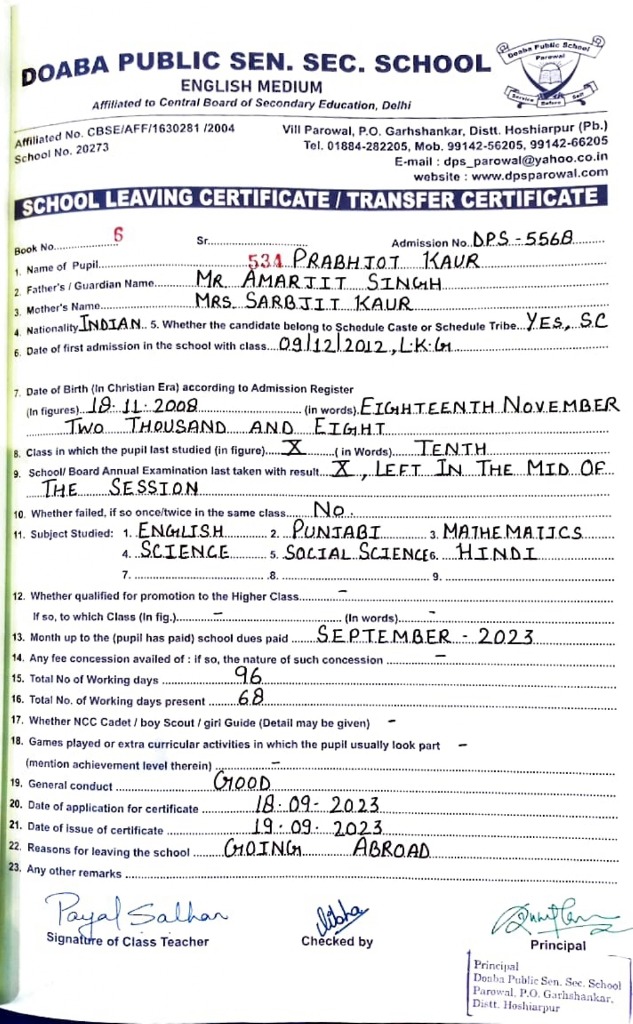 DOABA PUBLIC SEN. SEC. SCHOOL
ENGLISH MEDIUM
Affiliated to Central Board of Secondary Education, Delhi
Doaba Public School
Parowal
Service Before Self
Affiliated No. CBSE/AFF/1630281 /2004
School No. 20273
Vill Parowal, P.O. Garhshankar, Distt. Hoshiarpur (Pb.)
Tel. 01884-282205, Mob. 99142-56205, 99142-66205
E-mail : dps_parowal@yahoo.co.in
website : www.dpsparowal.com
SCHOOL LEAVING CERTIFICATE / TRANSFER CERTIFICATE
Book No. 6 Sr. Admission No. DPS - 5568
1. Name of Pupil 534 PRABHJOT KAUR
2. Father's / Guardian Name MR. AMARJIT SINGH
3. Mother's Name MRS. SARBJIT KAUR
4. Nationality INDIAN 5. Whether the candidate belong to Schedule Caste or Schedule Tribe YES, SC
6. Date of first admission in the school with class 09/12/2012, L.K.G
7. Date of Birth (In Christian Era) according to Admission Register
(In figures) 18.11.2008 (in words) EIGHTEENTH NOVEMBER
TWO THOUSAND AND EIGHT
8. Class in which the pupil last studied (in figure) X (in Words) TENTH
9. School/ Board Annual Examination last taken with result X, LEFT IN THE MID OF
THE SESSION
10. Whether failed, if so once/twice in the same class No.
11. Subject Studied: 1. ENGLISH 2. PUNJABI 3. MATHEMATICS
4. SCIENCE 5. SOCIAL SCIENCE 6. HINDI
7. 8. 9.
12. Whether qualified for promotion to the Higher Class -
If so, to which Class (In fig.) - (In words) -
13. Month up to the (pupil has paid) school dues paid SEPTEMBER - 2023
14. Any fee concession availed of : if so, the nature of such concession -
15. Total No of Working days 96
16. Total No. of Working days present 68
17. Whether NCC Cadet / boy Scout / girl Guide (Detail may be given) -
18. Games played or extra curricular activities in which the pupil usually look part -
(mention achievement level therein) -
19. General conduct GOOD
20. Date of application for certificate 18.09.2023
21. Date of issue of certificate 19.09.2023
22. Reasons for leaving the school GOING ABROAD
23. Any other remarks
Payal Salhan
Signature of Class Teacher
Checked by
Principal
Principal
Doaba Public Sen. Sec. School
Parowal, P.O. Garhshankar,
Distt. Hoshiarpur